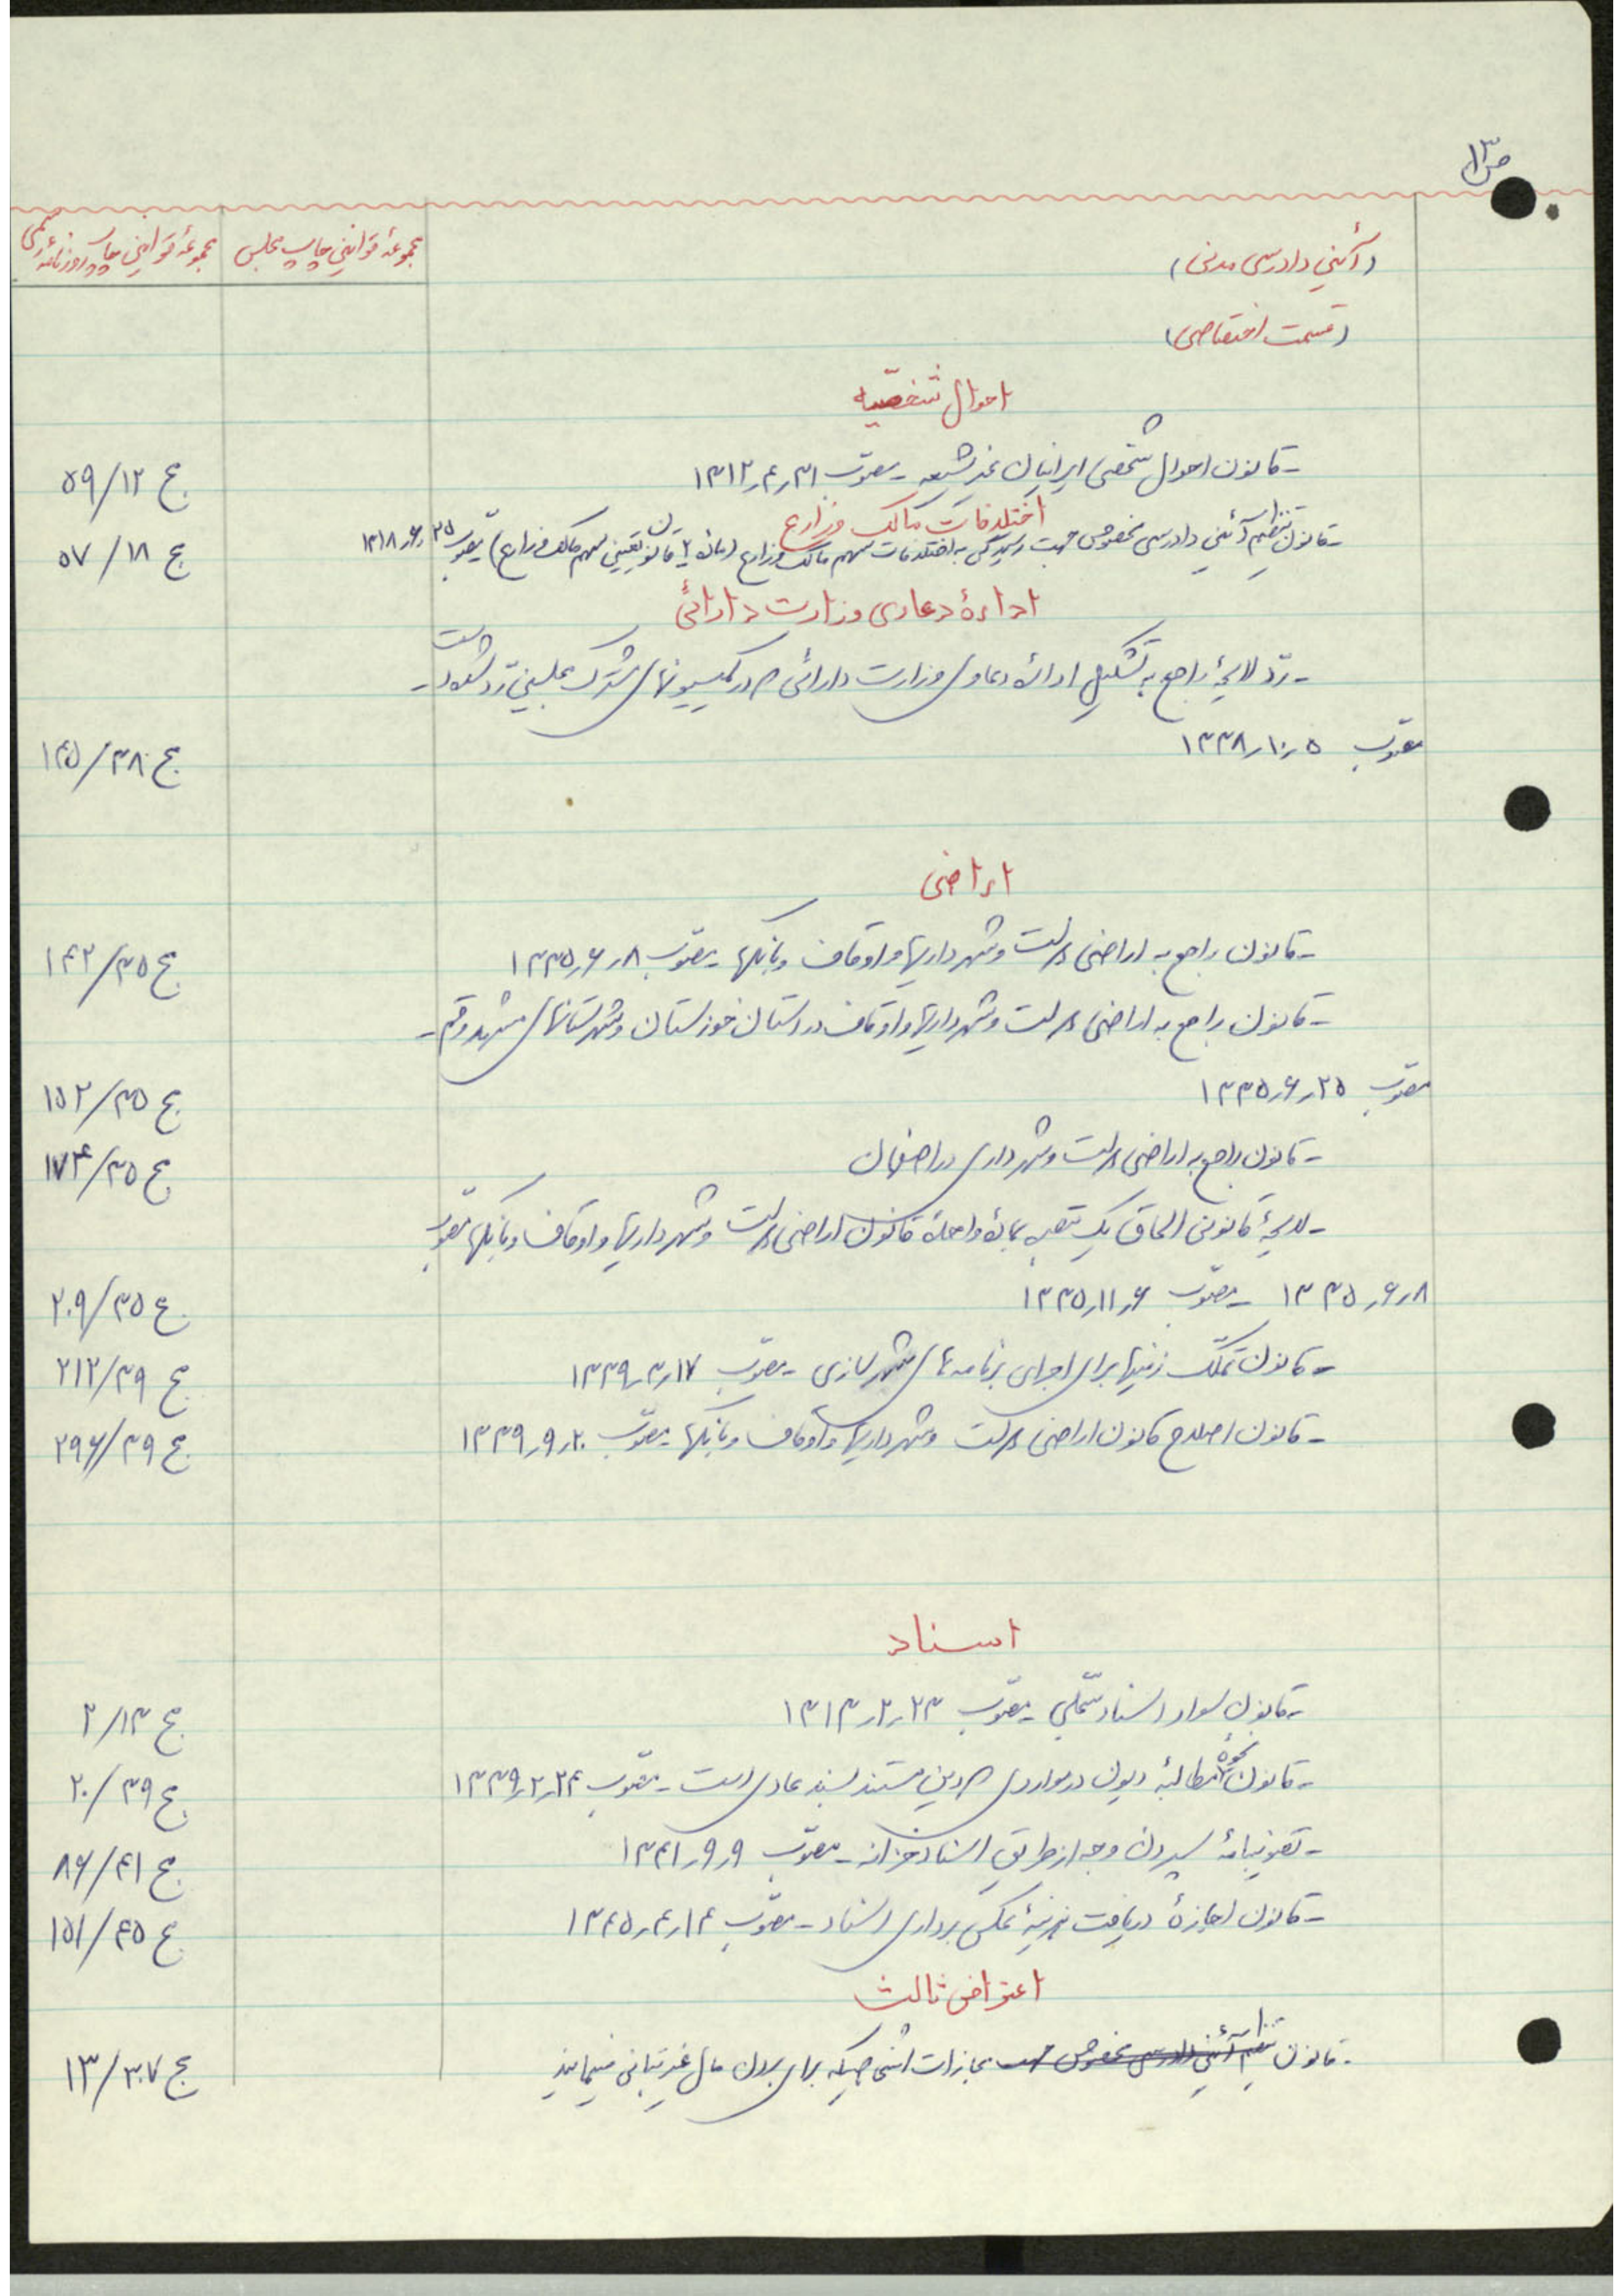 ص ۱۳
(آئین دادرسی مدنی)
مجموعهٔ قوانین چاپ مجلس
مجموعهٔ قوانین چاپ روزنامهٔ رسمی
(قسمت اختصاصی)
احوال شخصیه
- قانون احوال شخصی ایرانیان غیر شیعه - مصوب ۳۱ر۴ر۱۳۱۲ ج ۱۲/۵۹
اختلافات مالک و زارع
- قانون تنظیم آئین دادرسی مخصوص جهت رسیدگی به اختلافات سهم مالک و زارع (مادهٔ ۲ قانون تعیین سهم مالک و زارع) مصوب ۲۵ر۶ر۱۳۱۸ ج ۱۸/۵۷
ادارهٔ دعاوی وزارت دارائی
- ردّ لایحهٔ راجع به تشکیل ادارهٔ دعاوی وزارت دارائی که در کمیسیونهای مشترک مجلسین رد شده است -
مصوب ۵ر۱۰ر۱۳۳۸ ج ۳۸/۱۴۵
اراضی
- قانون راجع به اراضی دولت و شهرداریها و اوقاف و بانکها - مصوب ۸ر۶ر۱۳۳۵ ج ۳۵/۱۴۲
- قانون راجع به اراضی دولت و شهرداریها و اوقاف در استان خوزستان و شهرستانهای مشهد و قم -
مصوب ۲۵ر۶ر۱۳۳۵ ج ۳۵/۱۵۲
- قانون راجع به اراضی دولت و شهرداری در اصفهان ج ۳۵/۱۷۴
- لایحهٔ قانونی الحاق یک تبصره بمادهٔ واحدهٔ قانون اراضی دولت و شهرداریها و اوقاف و بانکها مصوب
۸ر۶ر۱۳۳۵ - مصوب ۶ر۱۱ر۱۳۳۵ ج ۳۵/۲۰۹
- قانون تملک زمینها برای اجرای برنامه های شهرسازی - مصوب ۱۷ر۳ر۱۳۳۹ ج ۳۹/۲۱۲
- قانون اصلاح قانون اراضی دولت و شهرداریها و اوقاف و بانکها - مصوب ۲۰ر۹ر۱۳۳۹ ج ۳۹/۲۹۶
اسناد
- قانون سواد اسناد سجلی - مصوب ۲۳ر۲ر۱۳۱۳ ج ۱۳/۲
- قانون نحوهٔ مطالبهٔ دیون در مواردی که دین مستند بسند عادی است - مصوب ۲۴ر۲ر۱۳۳۹ ج ۳۹/۲۰
- تصویبنامهٔ سپردن وجه از طریق اسناد خزانه - مصوب ۹ر۹ر۱۳۴۱ ج ۴۱/۸۶
- قانون اجازهٔ دریافت هزینهٔ عکس برداری اسناد - مصوب ۱۴ر۴ر۱۳۴۵ ج ۴۵/۱۵۱
اعتراض ثالث
- قانون تنظیم آئین دادرسی مخصوص جهت مجازات اشخاصیکه برای بردن مال غیر تبانی مینمایند ج ۳۰۷/۱۳